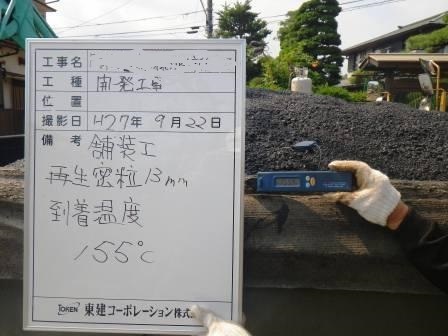 工事名
工種 開発工事
位置
撮影日 H27年 9月22日
備考 舗装工
再生密粒13mm
到着温度
155℃
TOKEN 東建コーポレーション株式